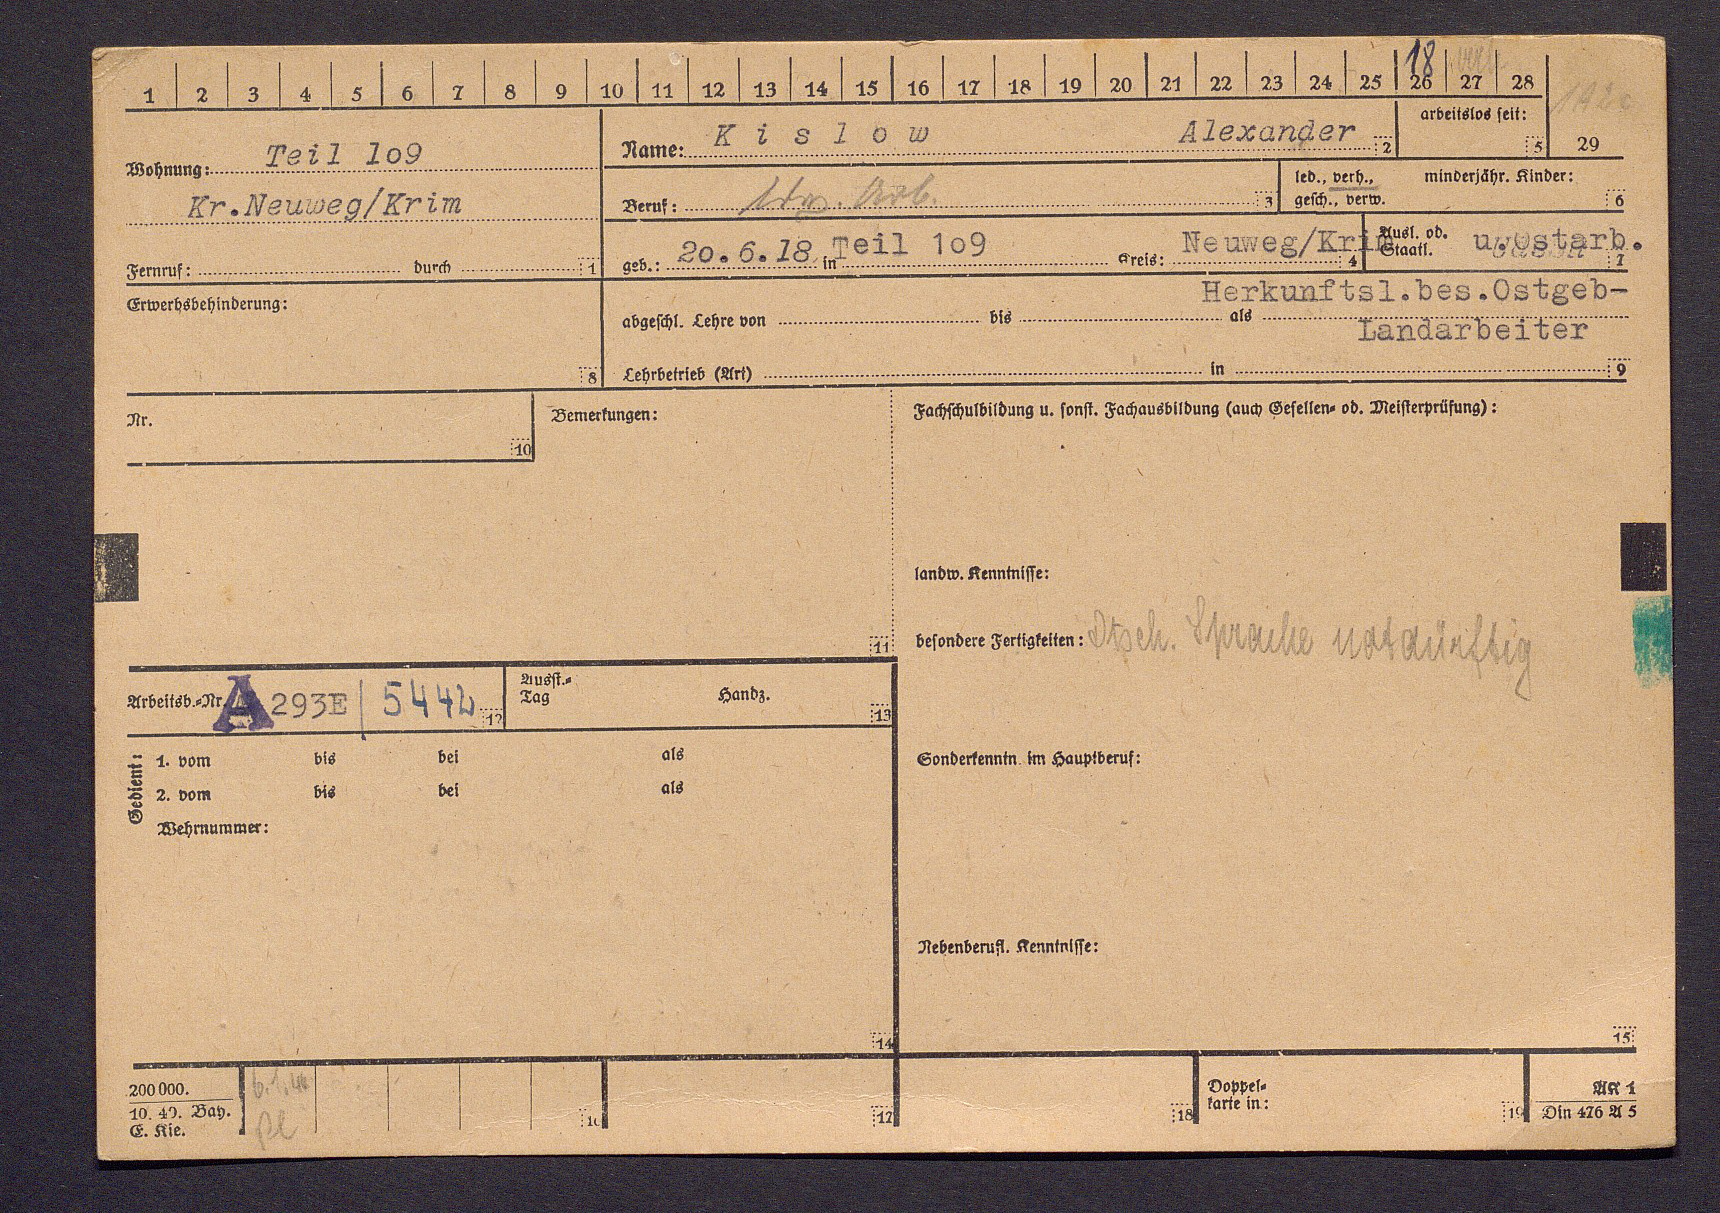 1 2 3 4 5 6 7 8 9 10 11 12 13 14 15 16 17 18 19 20 21 22 23 24 25 26 27 28
18 verh
29
Wohnung: Teil 1o9
Kr.Neuweg/Krim
Fernruf: durch 1
Name: K i s l o w Alexander 2
arbeitslos seit: 5
Beruf: Arb. 3
led., verh., gesch., verw.
minderjähr. Kinder: 6
geb.: 2o.6.18 in Teil 1o9 Kreis: Neuweg/Krim 4
Ausl. od. Staatl. u.Ostarb. 7
Erwerbsbehinderung: 8
Herkunftsl.bes.Ostgeb-
abgeschl. Lehre von bis als
Landarbeiter
Lehrbetrieb (Art) in 9
Nr. 10
Bemerkungen: 11
Fachschulbildung u. sonst. Fachausbildung (auch Gesellen- od. Meisterprüfung):
landw. Kenntnisse:
besondere Fertigkeiten: Dtsch. Sprache notdürftig
Arbeitsb.-Nr. A 293E / 5442 12
Ausst.-Tag Handz. 13
Gedient:
1. vom bis bei als
2. vom bis bei als
Wehrnummer:
14
Sonderkenntn. im Hauptberuf:
Nebenberufl. Kenntnisse:
15
200 000.
10. 40. Bay.
E. Kie.
6.1.44
16
17
18
Doppelkarte in: 19
AK 1
Din 476 A 5